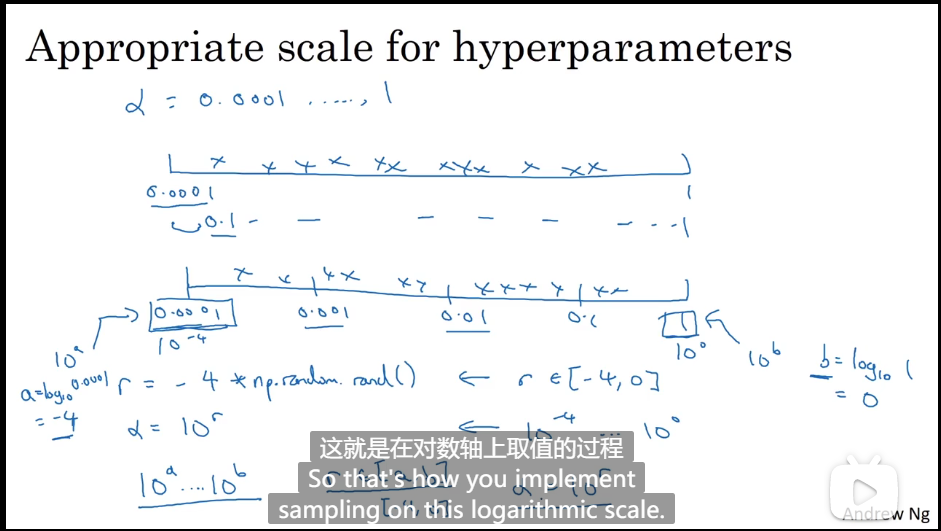 Appropriate scale for hyperparameters
α = 0.0001 ....., 1
0.0001 1
0.1 - - - - - - - - -1
0.0001 0.001 0.01 0.1 1
10^-4 10^0
10^a 10^b
a=log₁₀ 0.0001 r = -4 * np.random.rand() ← r ∈ [-4, 0] b = log₁₀ 1
= -4 = 0
α = 10^r ← 10^-4 ... 10^0
这就是在对数轴上取值的过程
10^a ... 10^b
So that's how you implement
sampling on this logarithmic scale.
Andrew Ng